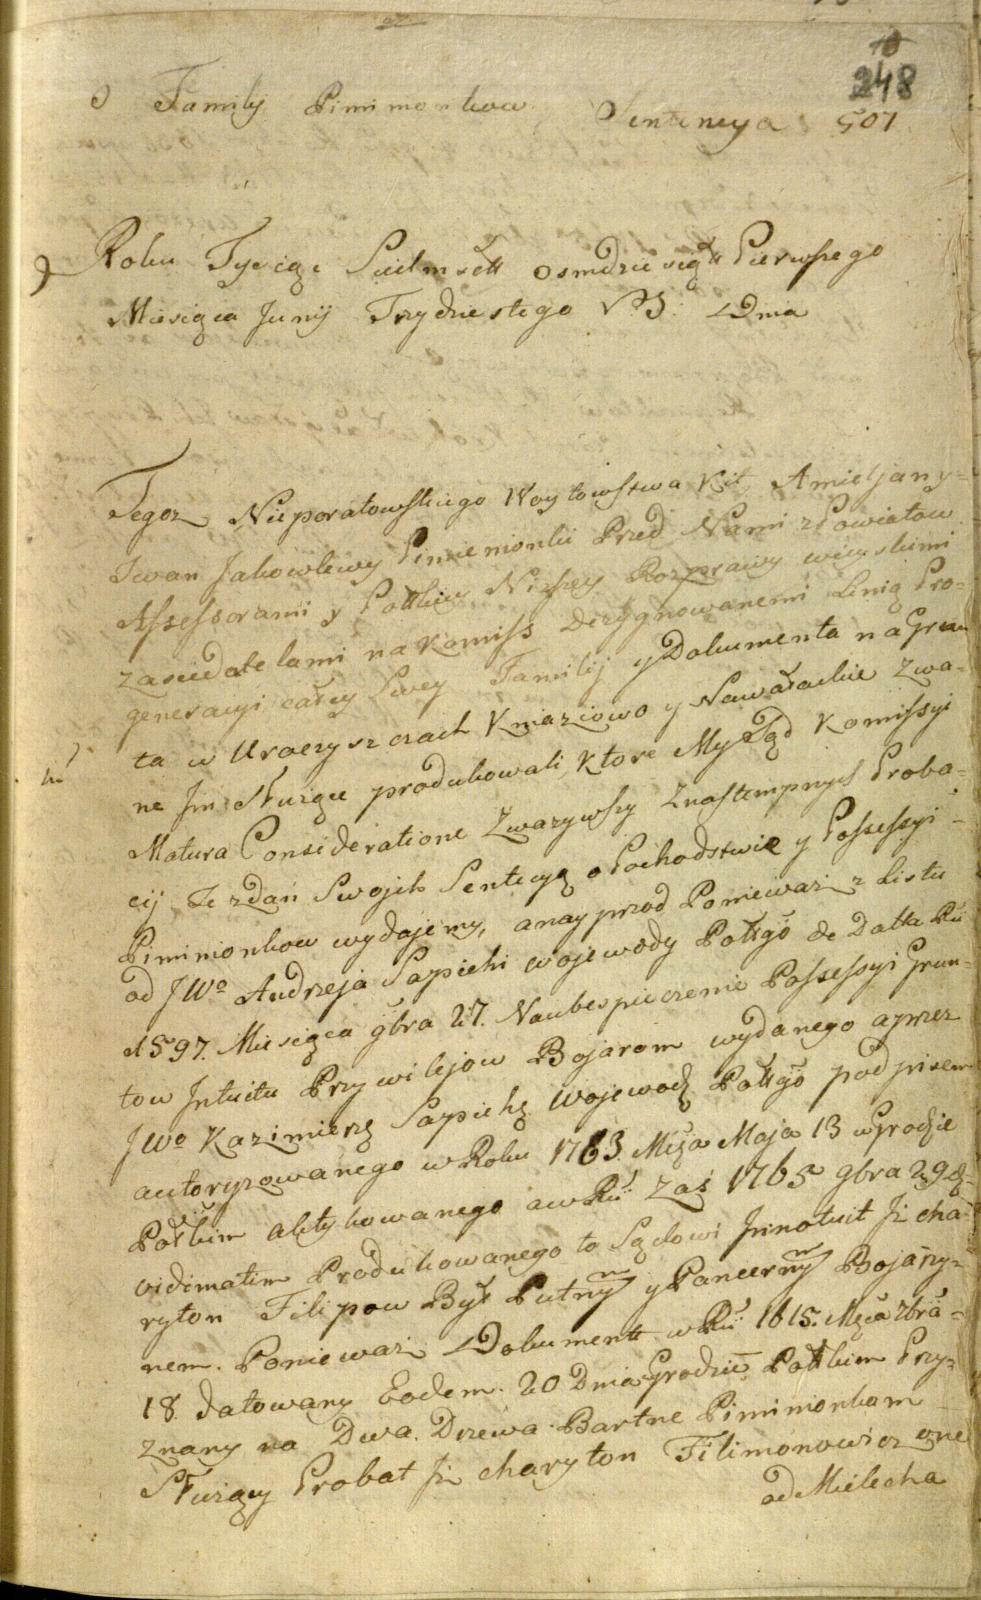 10
248
O Familij Pimimonkow Sentencya 501
Roku Tysiąc Siedmsett osmdziesiątt Pierwszego
Miesiąca Junij Trydziestego V. S. Dnia
Tegoz Nieporatowskiego Woytowstwa Kit, Amieljany-
Iwan Jakowlewy Pimienionki Przed Nami z Powiatow
Assessorami y Połłkiey Niższey Rozprawy wieyskiemi
zasiedatelami na Komiss dezygnowanemi Linią Pro-
generacyi całey Swey Familij y Dokumenta na Grun
ta w Uroczyszczach Kniaziowo y Nawałackie zwa-
ne Jm Służące produkowali, które My Sąd Komissyi
Matura Consideratione zwazywszy z nastempnych Proba-
cij Te zdań Swojch Sentecyą o Pochodstwie y Possessyi
Pimimonkow wydajemy, a nayprzod Poniewaz z Listu
od JWo Andrzeja Sapiehi wojewody Połłgo de Datta Ru
1597. Miesiąca gbra 27. Naubespieczenie Possessyi Grun-
tow Jntuitu Przywilejow Bojarom wydanego a przez
JWo Kazimierzą Sapiehę Wojewodę Połłgo podpisem
autoryzowanego w Roku 1763 Mięa Maja 13 w Grodzie
Połłkim aktykowanego a w Ru zaś 1765 gbra 29 d-
vidimatim Produkowanego to Sądowi Jnnotuit Jż cha-
ryton Filipow Był Putnym y Pancernym Bojary-
nem. Poniewaz Dokumentt w Ru 1615. Męca Xbra
18. datowany Eodem. 20 Dnia Grodzie Połłkim Przy-
znany na Dwa Drzewa Bartne Pimimonkom
Służący Probat Jż charyton Filimonowicz one
od Mielecha